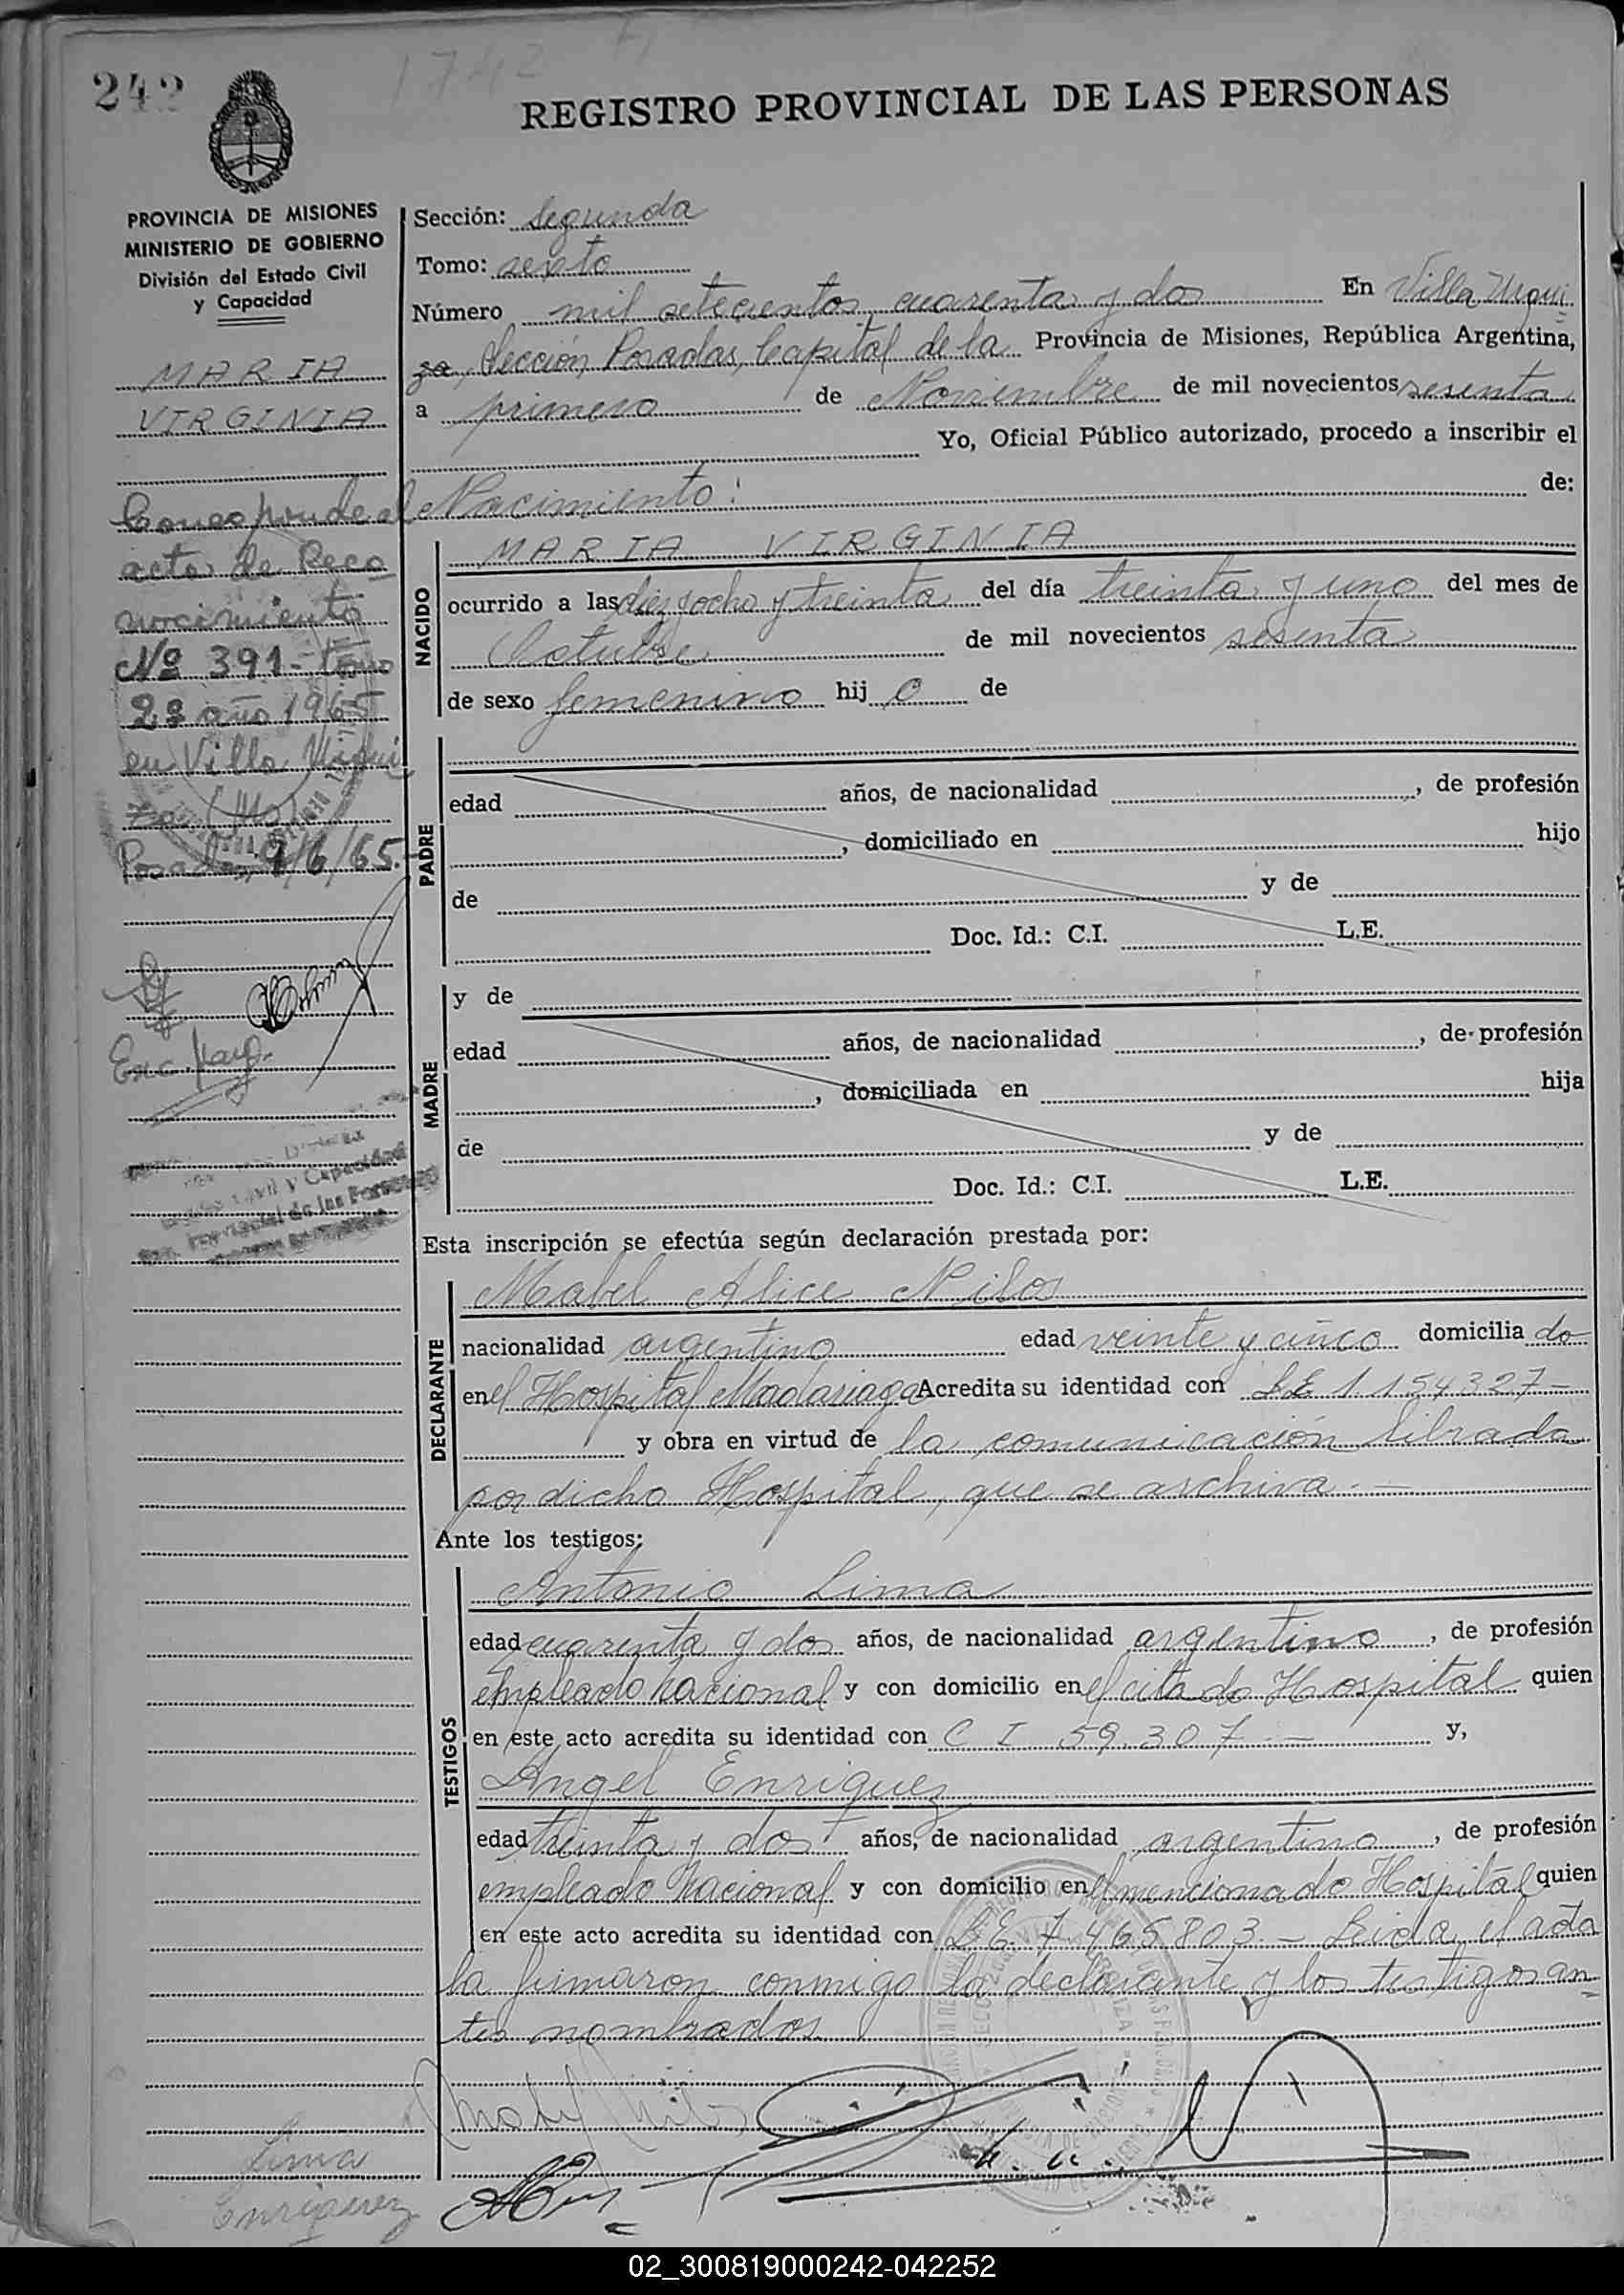 242
1742
REGISTRO PROVINCIAL DE LAS PERSONAS
PROVINCIA DE MISIONES
MINISTERIO DE GOBIERNO
División del Estado Civil
y Capacidad
MARIA
VIRGINIA
Corresponde al
acta de Reco
nocimiento
Nº 391- tomo
2º año 1965
en Villa Urqui
za (Ms)
Posadas, 9/6/65.-
Enc.
Civil y Capacidad
Provincial de las Personas
Sección: Segunda
Tomo: sexto
Número mil setecientos cuarenta y dos En Villa Urqui
za, Sección Posadas, Capital de la Provincia de Misiones, República Argentina,
a primero de Noviembre de mil novecientos sesenta
Yo, Oficial Público autorizado, procedo a inscribir el
Nacimiento: de:
NACIDO
MARIA VIRGINIA
ocurrido a las diez y ocho y treinta del día treinta y uno del mes de
Octubre de mil novecientos sesenta
de sexo femenino hij o de
PADRE
edad años, de nacionalidad , de profesión
, domiciliado en hijo
de y de
Doc. Id.: C.I. L.E.
MADRE
y de
edad años, de nacionalidad , de profesión
, domiciliada en hija
de y de
Doc. Id.: C.I. L.E.
Esta inscripción se efectúa según declaración prestada por:
DECLARANTE
Mabel Alice Nilos
nacionalidad argentino edad veinte y cinco domicilia do
en el Hospital Madariaga Acredita su identidad con LE 1.154327-
y obra en virtud de la comunicación librada
por dicho Hospital, que se archiva.-
Ante los testigos:
TESTIGOS
Antonio Lima
edad cuarenta y dos años, de nacionalidad argentino, de profesión
empleado nacional y con domicilio en el citado Hospital quien
en este acto acredita su identidad con C I 59.307.- y,
Angel Enriquez
edad treinta y dos años, de nacionalidad argentino, de profesión
empleado nacional y con domicilio en el mencionado Hospital quien
en este acto acredita su identidad con LE. 7.465.803.- Leida el acta
la firmaron conmigo la declarante y los testigos an
tes nombrados.
Lima
Enriquez
02_300819000242-042252